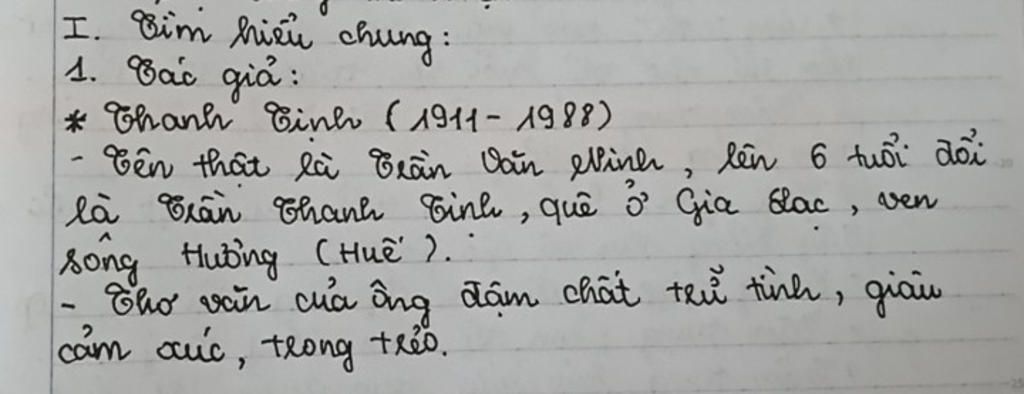 I. Tìm hiểu chung:
1. Tác giả:
* Thanh Tịnh (1911 - 1988)
- Tên thật là Trần Văn Ninh, lên 6 tuổi đổi
là Trần Thanh Tịnh, quê ở Gia Lạc, ven
sông Hương (Huế).
- Thơ văn của ông đậm chất trữ tình, giàu
cảm xúc, trong trẻo.